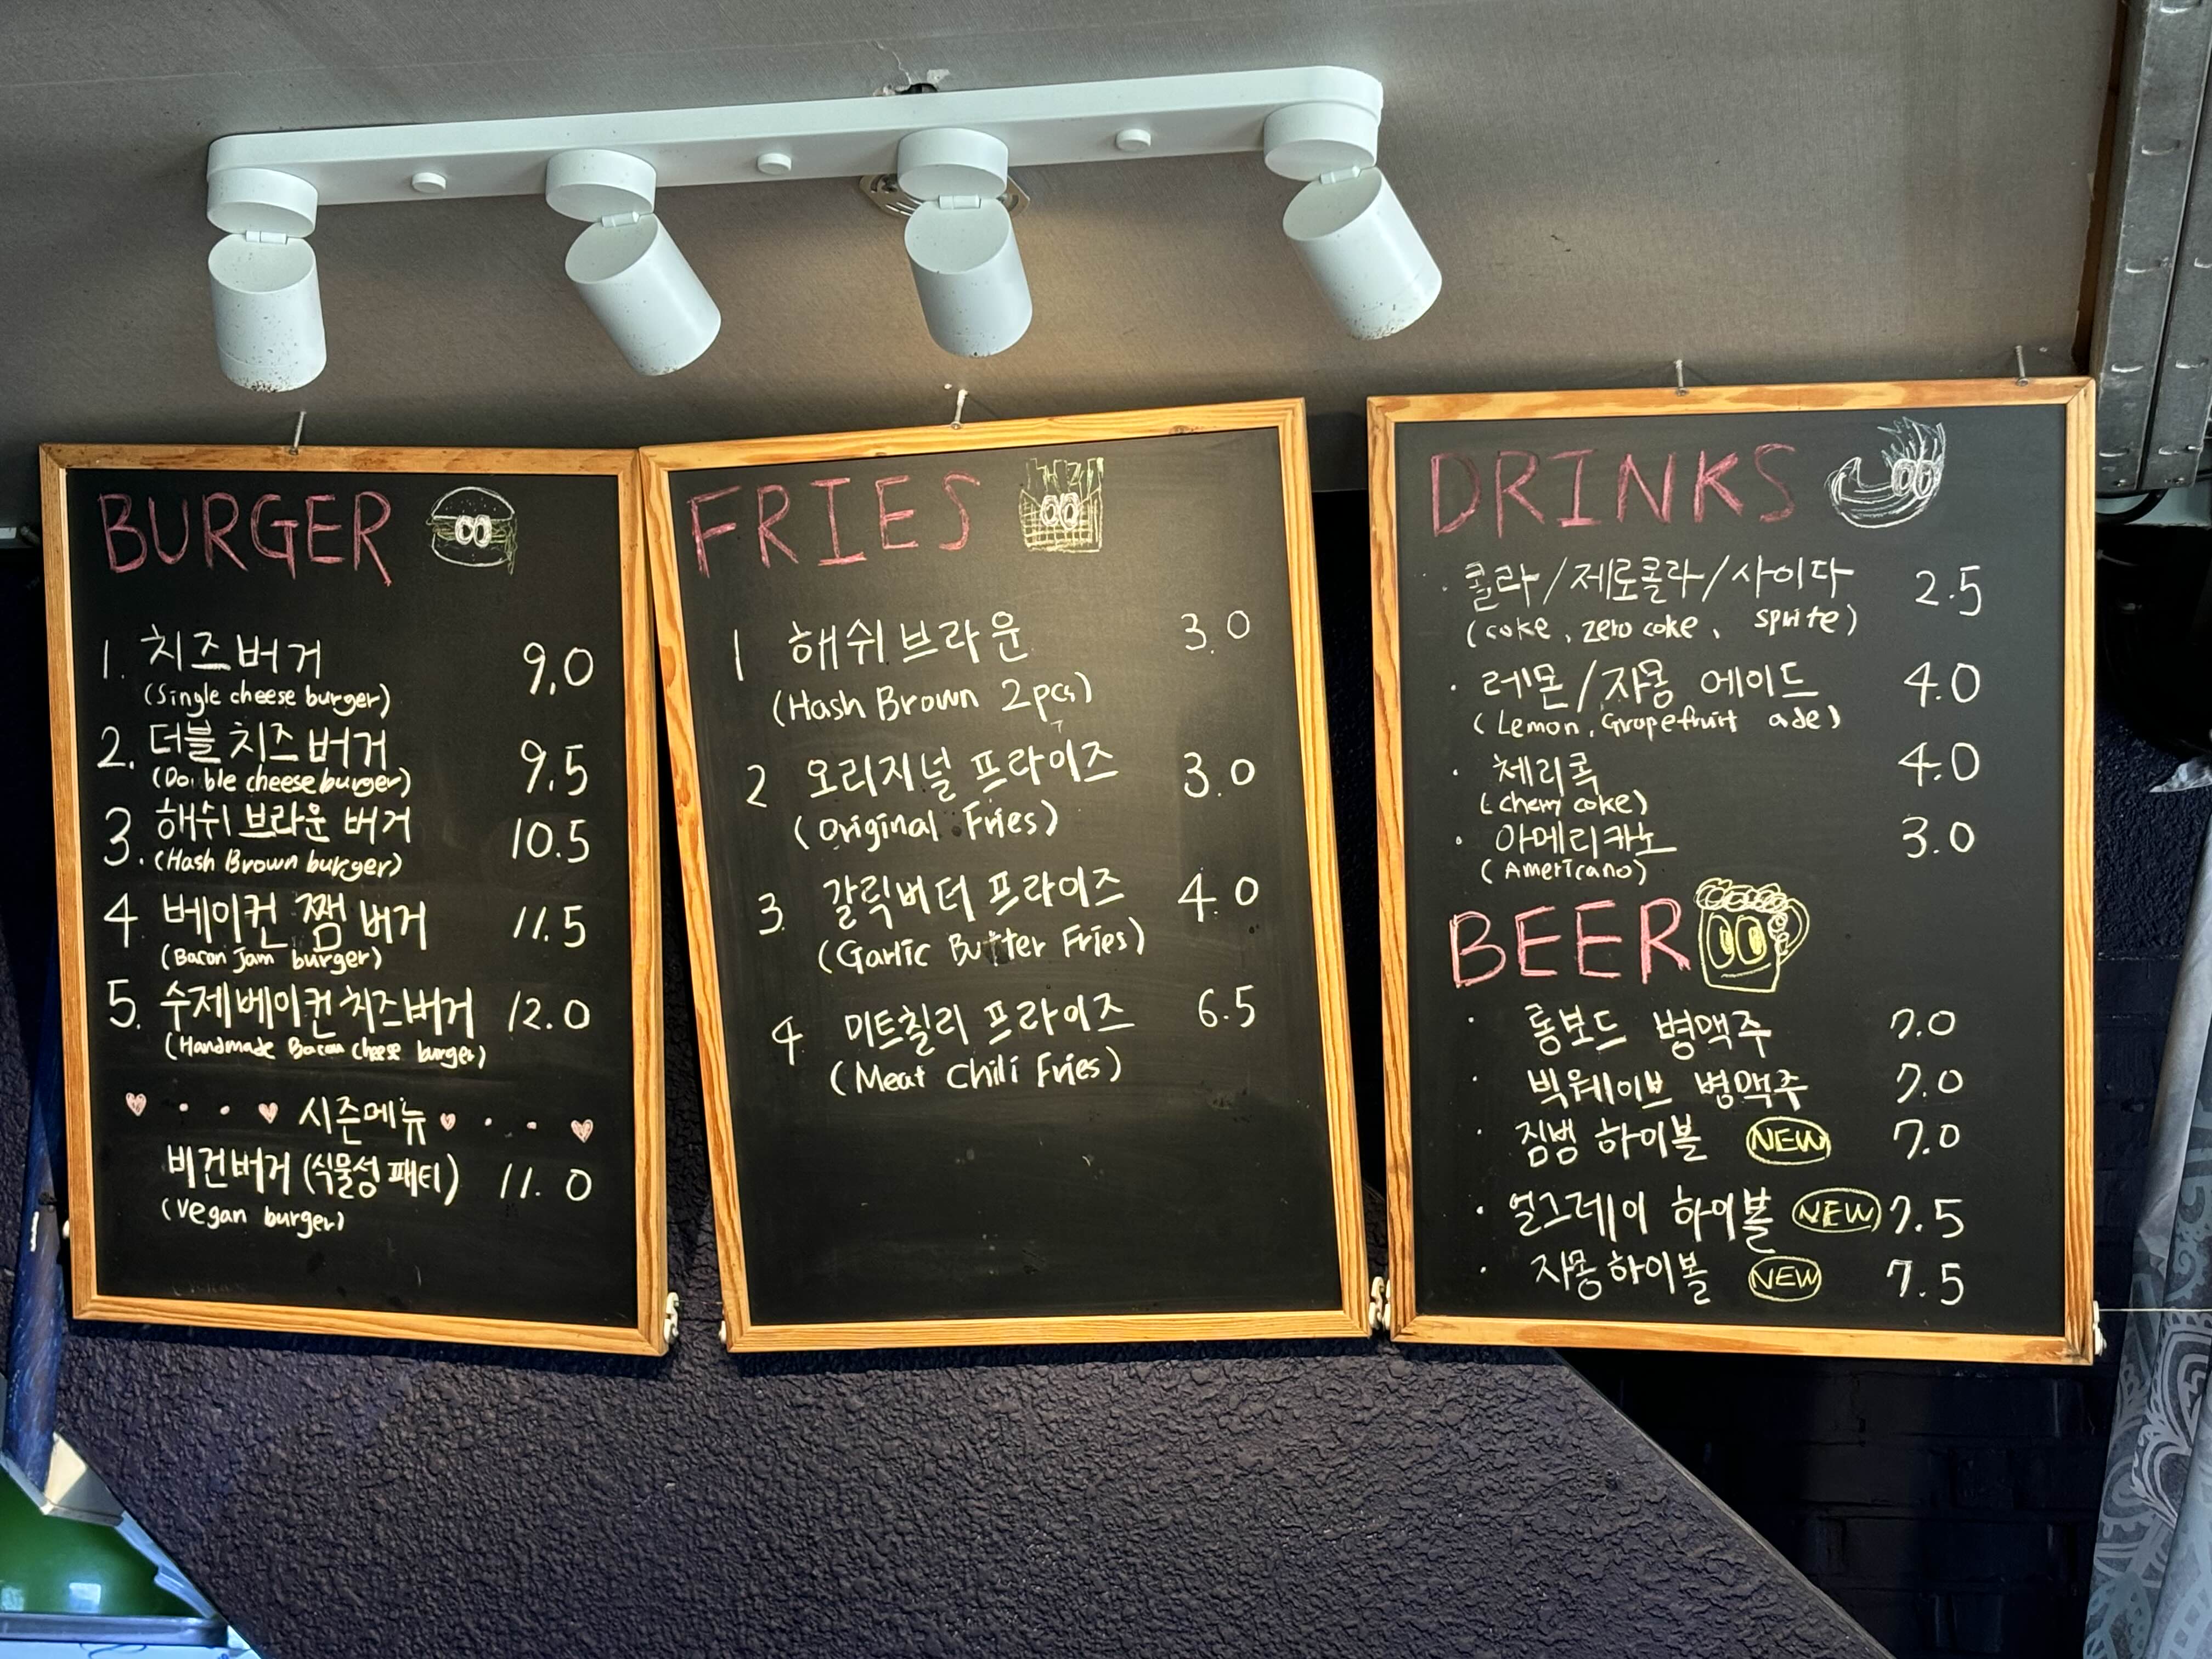 BURGER
1. 치즈버거 9.0
(Single cheese burger)
2. 더블 치즈버거 9.5
(Double cheese burger)
3. 해쉬 브라운 버거 10.5
(Hash Brown burger)
4 베이컨 잼 버거 11.5
(Bacon jam burger)
5. 수제베이컨치즈버거 12.0
(Handmade Bacon cheese burger)
시즌메뉴
비건버거 (식물성 패티) 11.0
(Vegan burger)
FRIES
1 해쉬브라운 3.0
(Hash Brown 2pcs)
2 오리지널 프라이즈 3.0
(Original Fries)
3. 갈릭버터 프라이즈 4.0
(Garlic Butter Fries)
4 미트칠리 프라이즈 6.5
(Meat Chili Fries)
DRINKS
· 콜라/제로콜라/사이다 2.5
(coke, zero coke, sprite)
· 레몬/자몽 에이드 4.0
(Lemon, Grapefruit ade)
· 체리콕 4.0
(cherry coke)
· 아메리카노 3.0
(Americano)
BEER
· 롱보드 병맥주 7.0
· 빅웨이브 병맥주 7.0
· 짐빔 하이볼 NEW 7.0
· 얼그레이 하이볼 NEW 7.5
· 자몽하이볼 NEW 7.5